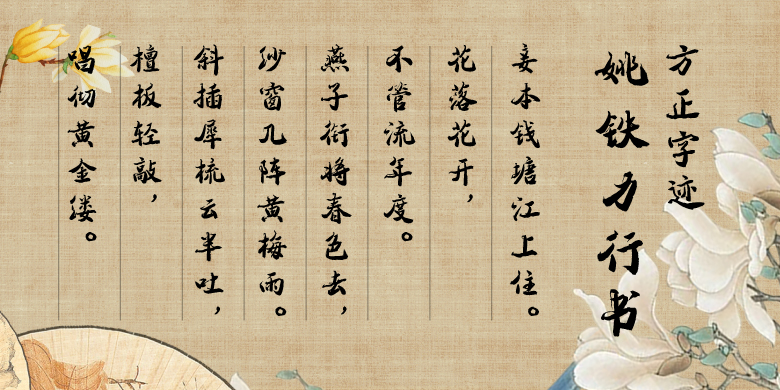 方正字迹
姚铁力行书
妾本钱塘江上住。
花落花开，
不管流年度。
燕子衔将春色去，
纱窗几阵黄梅雨。
斜插犀梳云半吐，
檀板轻敲，
唱彻黄金缕。